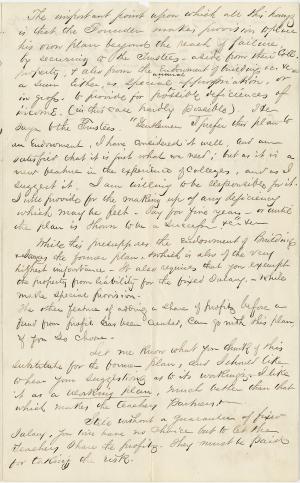 The important point upon which all this hangs
is that the Founder makes provision to place
his own plan beyond the reach of failure
by securing to the Trustees, aside from their Coll.
property, & also from the endowment of building,
a sum either as special annual appropriation, or
in gross to provide for possible deficiences of
income. (in this case hardly possible) He
says to the Trustees. "Gentlemen I prefer this plan to
an Endowment, I have considered it well, and am
satisfied that it is just what we need; but as it is a
new feature in the experience of Colleges, and as I
suggest it. I am willing to be responsible for it.
I will provide for the making up of any deficiency
which may be felt - say for five years - or until
the plan is shown to be a success
While this presupposes the Endowment of Building
the former plan. which is also of the very
highest importance - It also requires that you exempt
the property from liability for the fixed Salary - While
make special provision.
The other feature of adding a share of profits before a
fund from profits has been created, can go with this plan
if you so choose.
Let me know what you think of this
substitute for the former plan, and I should like
to hear your suggestions as to its workings. I like
it as a working plan, much better than that
which makes the teachers Partners.
Still without a guarantee of fixed
Salary, you have no choice but to let the
teachers share the profits. They must be paid
for taking the risk.